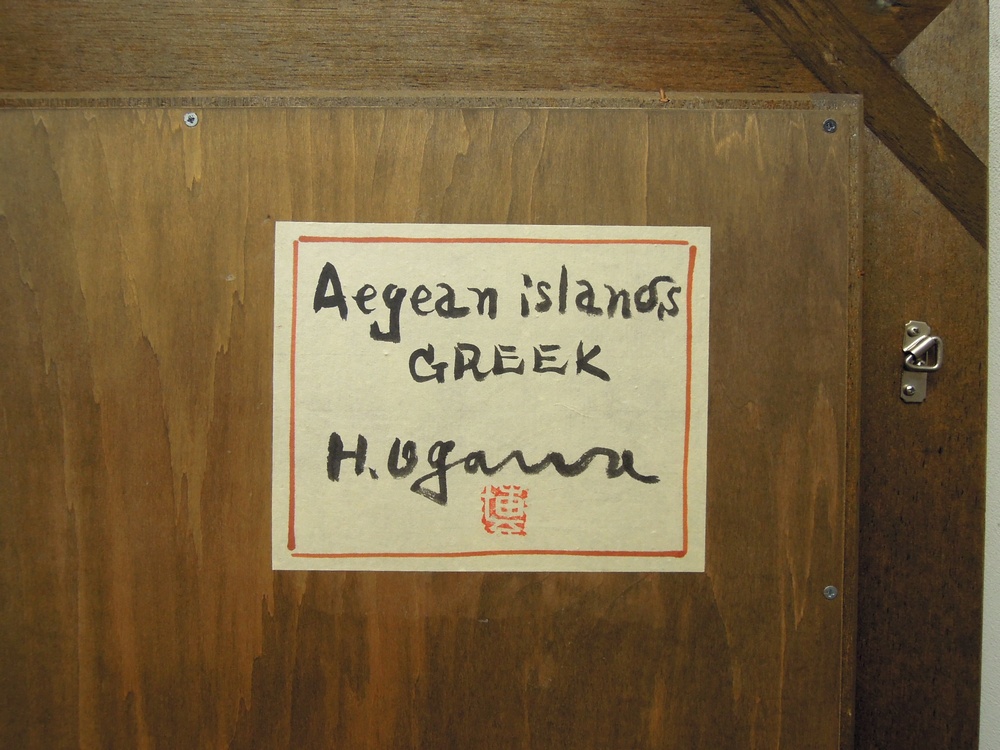 Aegean islands
GREEK
H. Ogawa
博